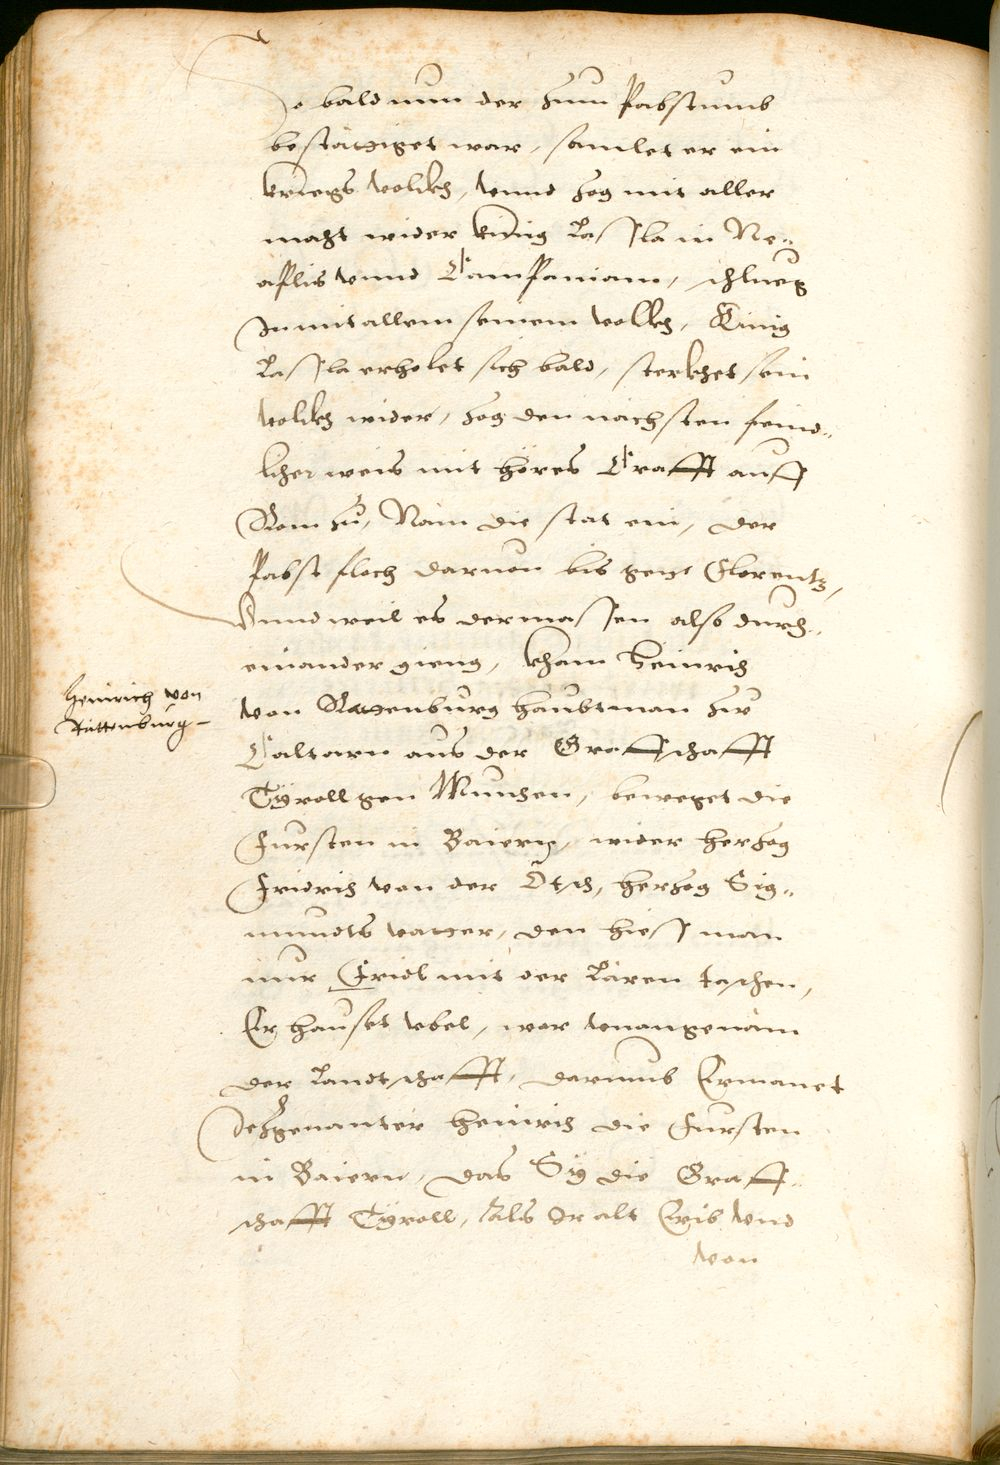 So bald nun der zum Pabstumb
bestättiget war, samlet er ein
kriegs volckh, vnnd zog mit aller
macht wider König Lassla in Ne-
aplis vnnd Campaniam, schlueg
In mit allem seinem volckh, König
Lassla erholet sich bald, sterkhet sein
volckh wider, zog den nächsten feind-
licher weis mit höres Crafft auff
Rom zu, Nam die stat ein, der
Pabst floch daruon bis gen Florentz,
Vnnd weil es dermassen also durch-
einander gieng, kham Heinrich
Heinrich von
Rattenburg
von Rattenburg haubtman zw
Caltarn aus der Graffschafft
Tÿroll gen Munchen, beweget die
Fursten in Baiern, wider herzog
Fridrich von der Etsch, herzog Sig-
mundts vatter, den hiess man
nur Fridl mit der Lären taschen,
Er hauset vbel, war vnangenäm
der Landtschafft, darumb Ermanet
Jezgenanter Heinrich die Fursten
in Baiern, das Sÿ die Graff-
schafft Tÿroll, als Ir alt Erib vnd
von